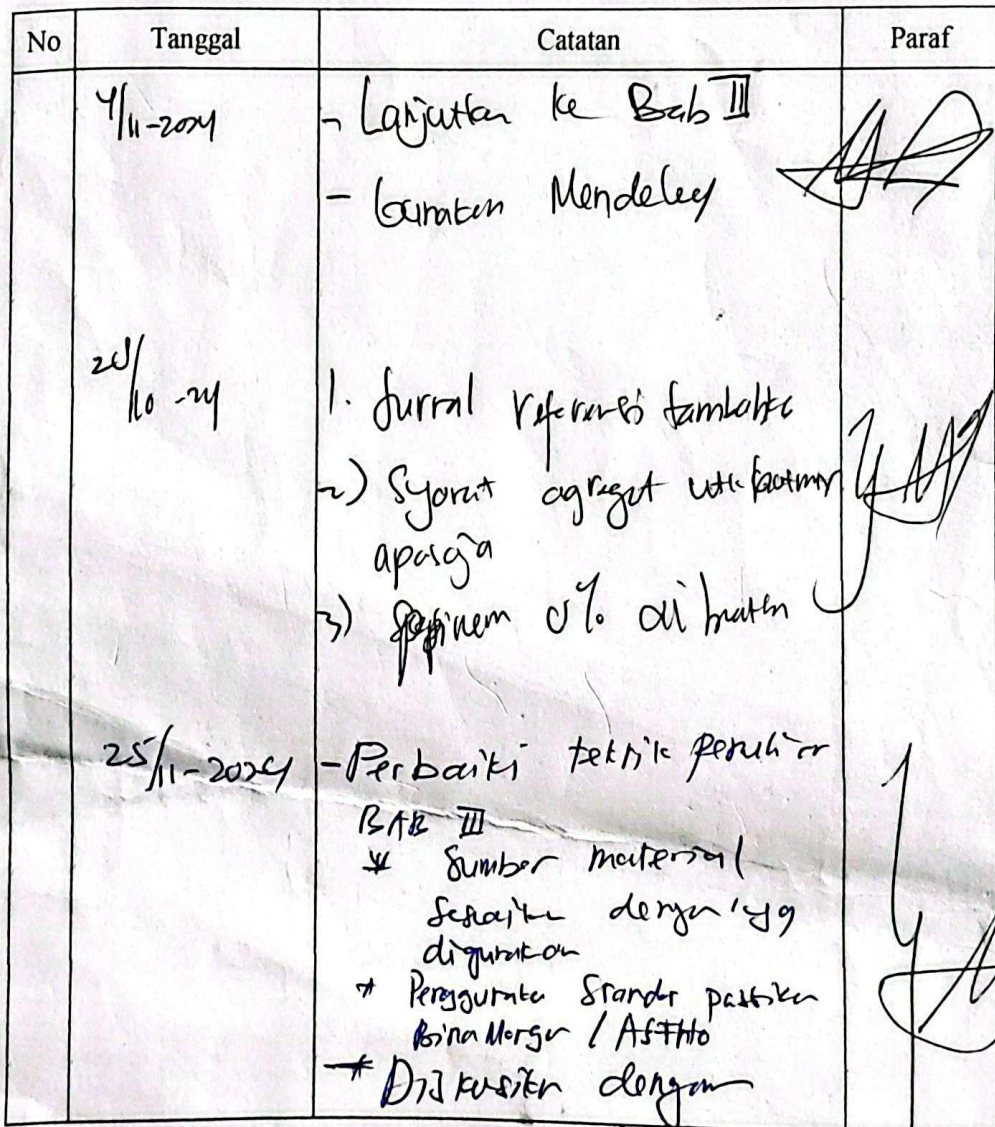 No Tanggal Catatan Paraf
4/11-2024 - Lanjutkan ke Bab II
- Gunakan Mendeley
/10-24 1. Jurnal referensi tambahkan
2) Syarat agregat
apasaja
3) 0% di buatkan
25/11-2024 - Perbaiki teknik
BAB III
* Sumber material
Sesuaikan dengan yg
digunakan
* Penggunaan Standar pastikan
Bina Marga / AASHTO
* Diskusikan dengan